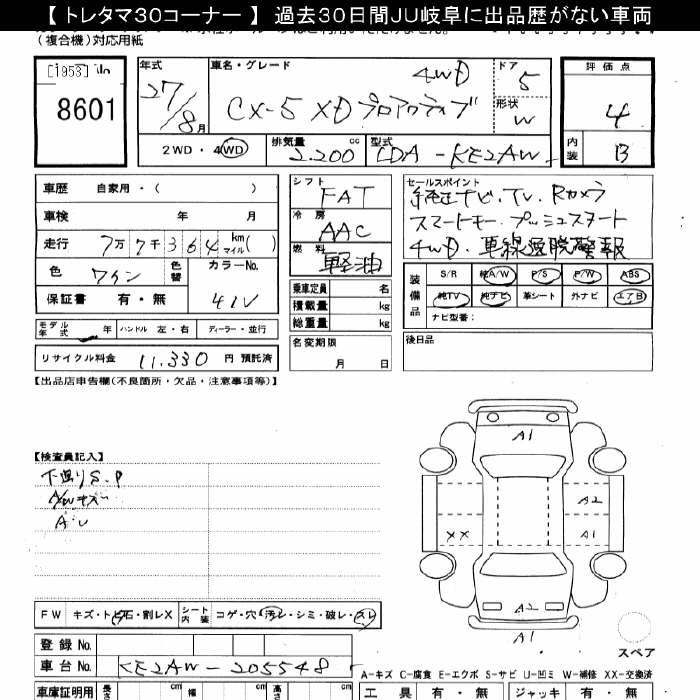 【 トレタマ30コーナー 】 過去30日間JU岐阜に出品歴がない車両
(複合機)対応用紙
[1953]
8601
年式
27/8月
車名・グレード
4WD
CX-5 XD プロアクティブ
ドア
5
形状
W
評価点
4
内装
B
2WD・4WD
排気量 cc
2.200
型式
LDA-KE2AW
車歴 自家用・( )
車検 年 月
走行 7万7千364 km マイル( )
色 ワイン
色替
カラーNo.
41V
保証書 有・無
モデル年式 年 ハンドル 左・右 ディーラー・並行
リサイクル料金 11.330 円 預託済
シフト
FAT
冷房
AAC
燃料
軽油
乗車定員 名
積載量 kg
総重量 kg
名変期限
月 日
セールスポイント
純正ナビ・TV・Rカメラ
スマートキー プッシュスタート
4WD・車線逸脱警報
装備品
S/R 純A/W P/S P/W ABS
純TV 純ナビ 革シート 外ナビ エアB
ナビ型番:
後日品
【出品店申告欄(不良箇所・欠品・注意事項等)】
【検査員記入】
下廻りS.P
A/Wキズ
A・U
A1
A2
XX
A1
A2
A1
スペア
FW キズ・トビ石・割レX シート内装 コゲ・穴・汚レ・シミ・破レ・スレ
登録No.
車台No. KE2AW-205548
A－キズ C－腐食 E－エクボ S－サビ U－凹ミ W－補修 XX－交換済
車庫証明用 長さ cm 幅 cm 高さ cm
工具 有・無 ジャッキ 有・無